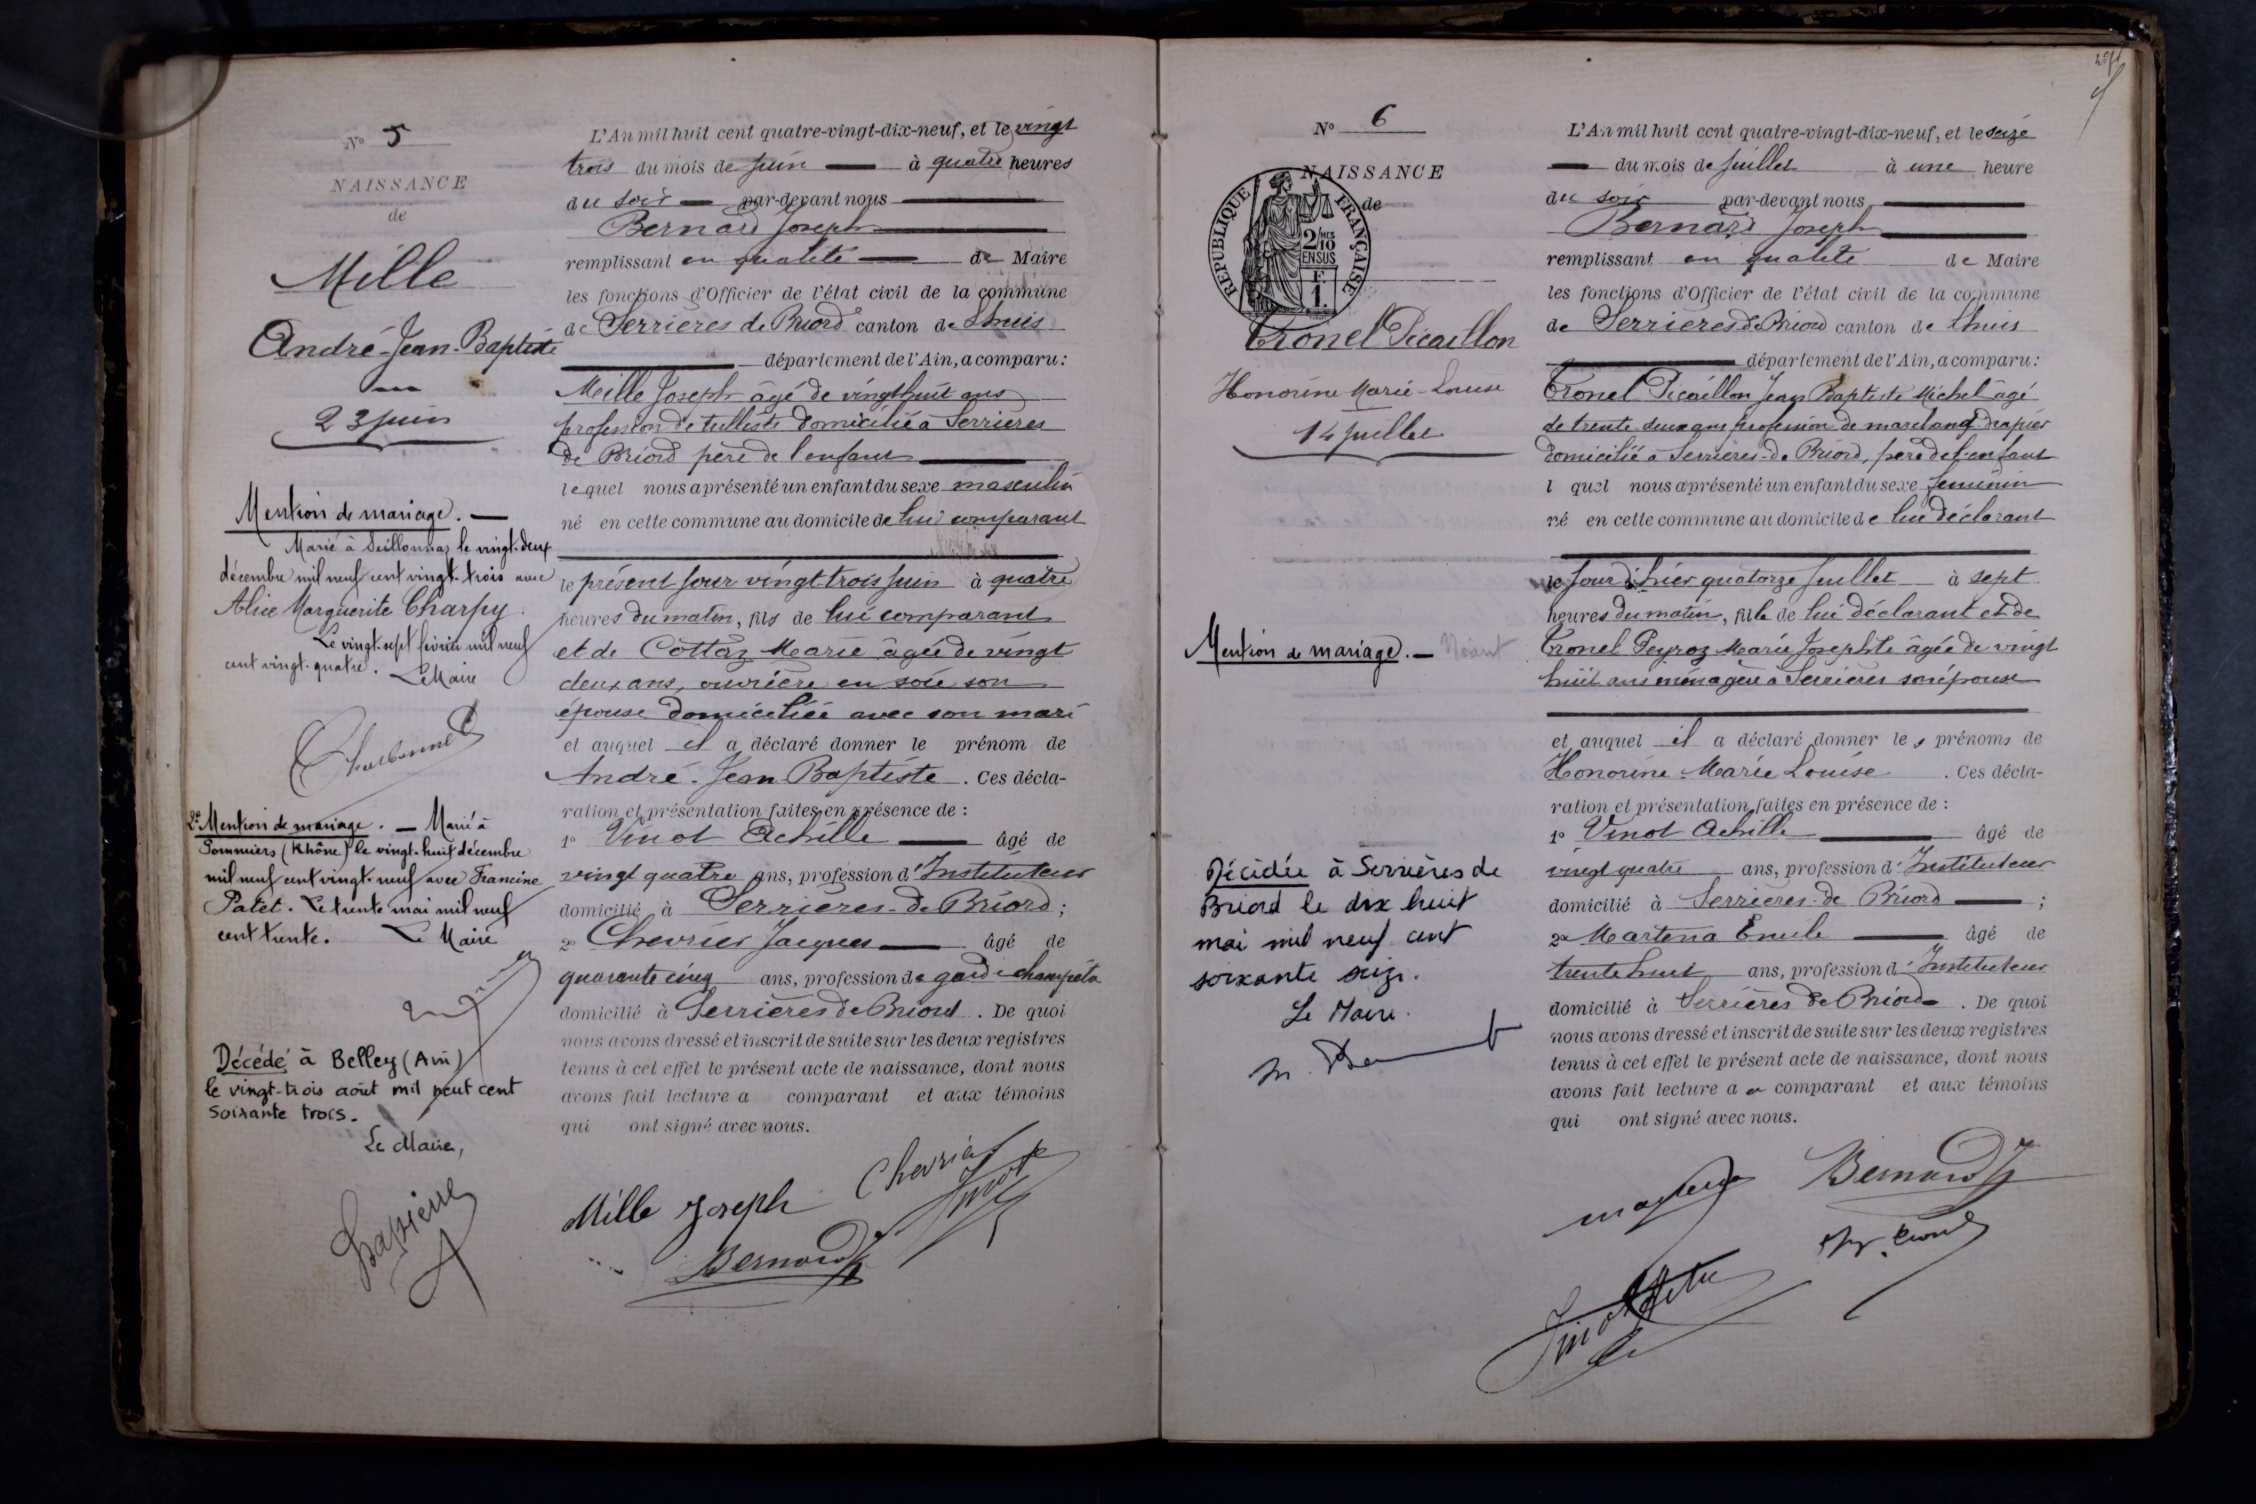 Nº 5
NAISSANCE
de
Mille
André-Jean-Baptiste
23 juin
Mention de mariage. —
Marié à Seillonnaz le vingt-deux
décembre mil neuf cent vingt-trois avec
Alice Marguerite Charpy.
Le vingt-sept février mil neuf
cent vingt-quatre. Le Maire
2e Mention de mariage. — Marié à
(Rhône) le vingt-huit décembre
mil neuf cent vingt-neuf avec Francine
Patet. Le trente mai mil neuf
cent trente. Le Maire
Décédé à Belley (Ain)
le vingt-trois août mil neuf cent
soixante trois.
Le Maire,
L'An mil huit cent quatre-vingt-dix-neuf, et le vingt
trois du mois de juin à quatre heures
du soir par-devant nous
Bernard Joseph
remplissant en qualité de Maire
les fonctions d'Officier de l'état civil de la commune
de Serrières de Briord canton de Lhuis
département de l'Ain, a comparu:
Mille Joseph âgé de vingt huit ans
profession de tulliste domicilié à Serrières
de Briord père de l'enfant
lequel nous a présenté un enfant du sexe masculin
né en cette commune au domicile de lui comparant
le présent jour vingt-trois juin à quatre
heures du matin, fils de lui comparant
et de Cottaz Marie âgée de vingt
deux ans, ouvrière en soie son
épouse domiciliée avec son mari
et auquel il a déclaré donner le prénom de
André-Jean Baptiste. Ces décla-
ration et présentation faites en présence de :
1º Vinot Achille âgé de
vingt quatre ans, profession d'Instituteur
domicilié à Serrières-de Briord;
2º Chevrier Jacques âgé de
quarante cinq ans, profession de garde champêtre
domicilié à Serrières de Briord. De quoi
nous avons dressé et inscrit de suite sur les deux registres
tenus à cet effet le présent acte de naissance, dont nous
avons fait lecture a comparant et aux témoins
qui ont signé avec nous.
Mille Joseph Chevrier Vinot
Bernard
Nº 6
NAISSANCE
de
RÉPUBLIQUE FRANÇAISE
2/10 EN SUS
F 1.
Tronel Picaillon
Honorine Marie-Louise
14 juillet
Mention de mariage. — Néant
Décédée à Serrières de
Briord le dix huit
mai mil neuf cent
soixante seize.
Le Maire.
L'An mil huit cent quatre-vingt-dix-neuf, et le seize
du mois de juillet à une heure
du soir par-devant nous
Bernard Joseph
remplissant en qualité de Maire
les fonctions d'Officier de l'état civil de la commune
de Serrières de Briord canton de Lhuis
département de l'Ain, a comparu:
Tronel Picaillon Jean Baptiste Michel âgé
de trente deux ans profession de marchand drapier
domicilié à Serrières-de Briord, père de l'enfant
l quel nous a présenté un enfant du sexe féminin
né en cette commune au domicile de lui déclarant
le jour d'hier quatorze juillet à sept
heures du matin, fille de lui déclarant et de
Tronel Peyroz Marie Josephte âgée de vingt
huit ans ménagère à Serrières son épouse
et auquel il a déclaré donner les prénoms de
Honorine Marie Louise. Ces décla-
ration et présentation faites en présence de :
1º Vinot Achille âgé de
vingt quatre ans, profession d'Instituteur
domicilié à Serrières-de Briord ;
2º Martena Emile âgé de
trente huit ans, profession d'Instituteur
domicilié à Serrières de Briord. De quoi
nous avons dressé et inscrit de suite sur les deux registres
tenus à cet effet le présent acte de naissance, dont nous
avons fait lecture a u comparant et aux témoins
qui ont signé avec nous.
Bernard